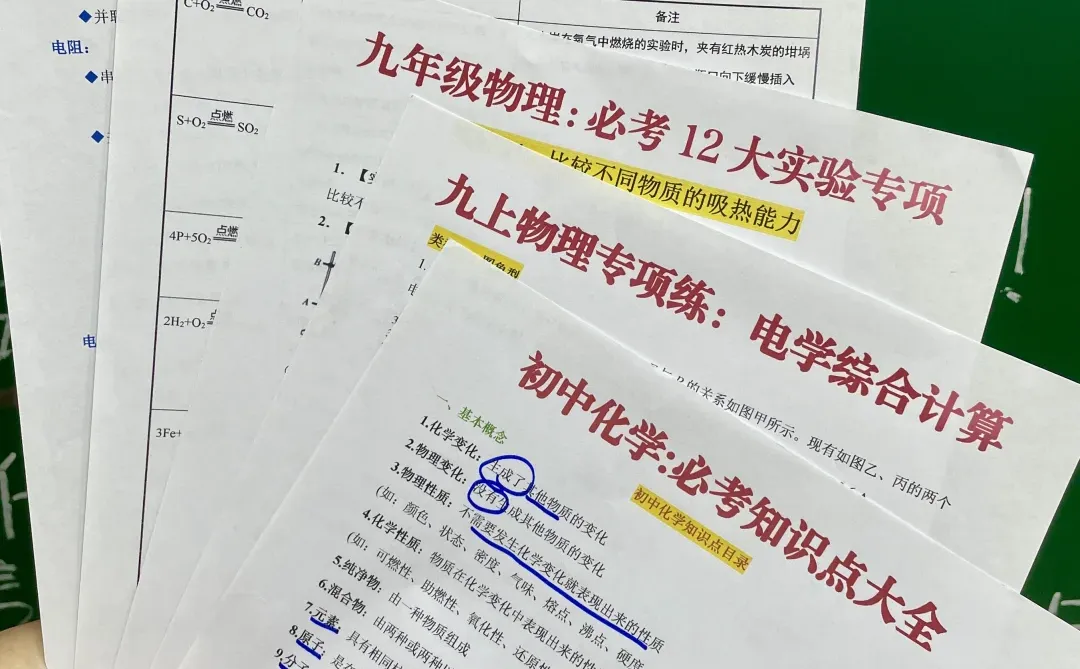 ◆并
电阻:
◆串
◆
电
C+O₂ 点燃 CO₂
S+O₂ 点燃 SO₂
4P+5O₂ 点燃
2H₂+O₂
3Fe+
备注
在氧气中燃烧的实验时,夹有红热木炭的坩埚
向下缓慢插入
九年级物理:必考12大实验专项
比较不同物质的吸热能力
1.【
比较不
2.【
B
A
九上物理专项练:电学综合计算
类
1.
电
的关系如图甲所示。现有如图乙、丙的两个
初中化学:必考知识点大全
初中化学知识点目录
一、基本概念
1.化学变化:生成了其他物质的变化
2.物理变化:没有生成其他物质的变化
3.物理性质:不需要发生化学变化就表现出来的性质
(如:颜色、状态、密度、气味、熔点、沸点、硬度
4.化学性质:物质在化学变化中表现出来的性
(如:可燃性、助燃性、氧化性、还原
5.纯净物:由一种物质组成
6.混合物:由两种或两种
7.元素:具有相同
8.原子:是在
9.分子